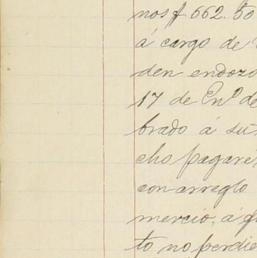 nos $ 662.50
á cargo de
den endozo
17 de Enº de
brado á su
cho pagaré
con arreglo
mercio, á
to no perdie